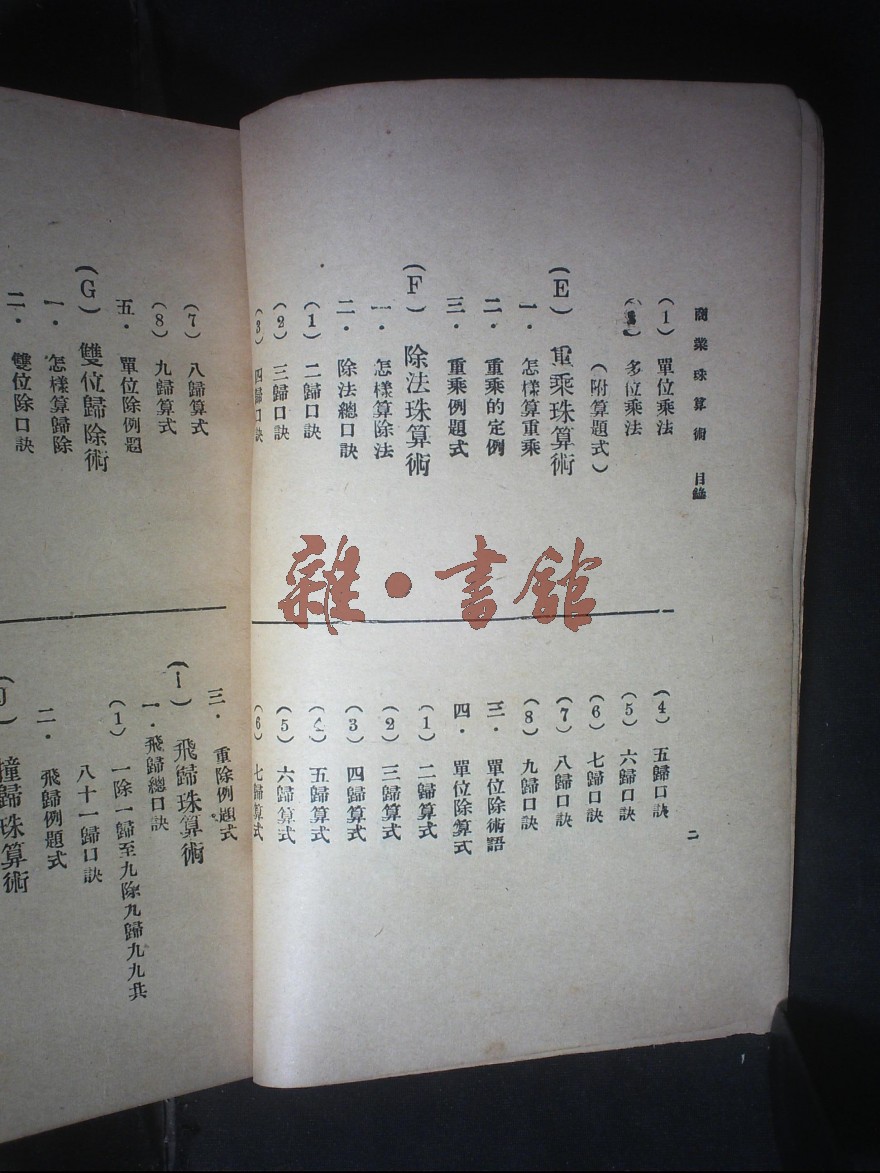 商業珠算術 目錄
(1) 單位乘法
多位乘法
(附算題式)
(E) 重乘珠算術
一．怎樣算重乘
二．重乘的定例
三．重乘例題式
(F) 除法珠算術
一．怎樣算除法
二．除法總口訣
(1) 二歸口訣
(2) 三歸口訣
(3) 四歸口訣
(4) 五歸口訣
(5) 六歸口訣
(6) 七歸口訣
(7) 八歸口訣
(8) 九歸口訣
三．單位除術語
四．單位除算式
(1) 二歸算式
(2) 三歸算式
(3) 四歸算式
(4) 五歸算式
(5) 六歸算式
(6) 七歸算式
二
雜·書館
(7) 八歸算式
(8) 九歸算式
五．單位除例題
(G) 雙位歸除術
一．怎樣算歸除
二．雙位除口訣
三．重除例題式
(I) 飛歸珠算術
一．飛歸總口訣
(1) 一除一歸至九除九歸九九共
八十一歸口訣
二．飛歸例題式
(J) 撞歸珠算術